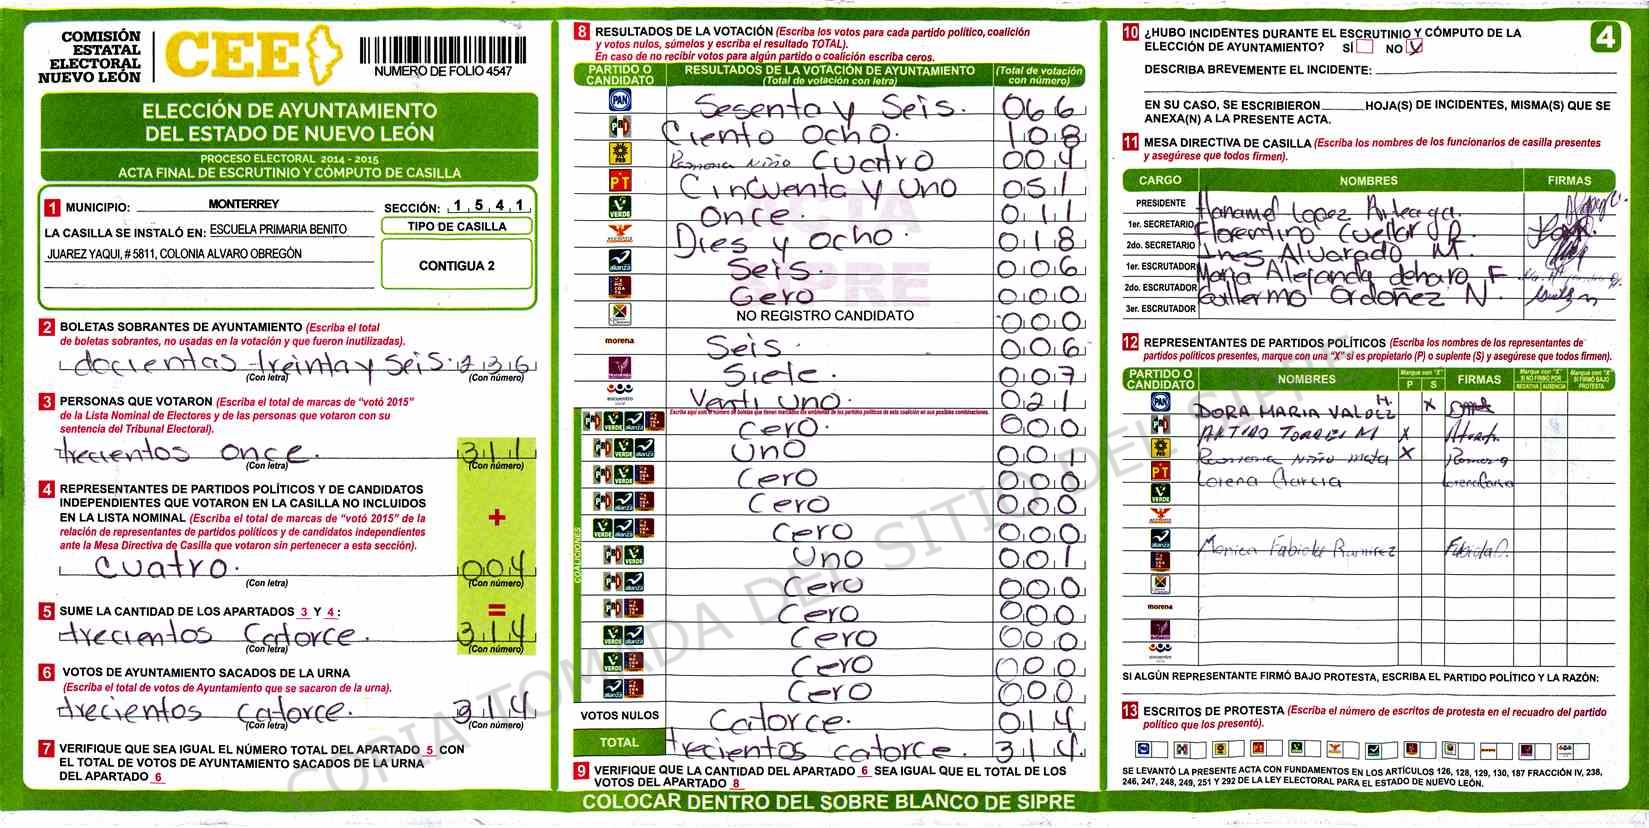 COMISIÓN
ESTATAL
ELECTORAL
NUEVO LEÓN
CEE
NUMERO DE FOLIO 4547
ELECCIÓN DE AYUNTAMIENTO
DEL ESTADO DE NUEVO LEÓN
PROCESO ELECTORAL 2014 - 2015
ACTA FINAL DE ESCRUTINIO Y CÓMPUTO DE CASILLA
1 MUNICIPIO: MONTERREY SECCIÓN: 1 5 4 1
LA CASILLA SE INSTALÓ EN: ESCUELA PRIMARIA BENITO
JUAREZ YAQUI, # 5811, COLONIA ALVARO OBREGÓN
TIPO DE CASILLA
CONTIGUA 2
2 BOLETAS SOBRANTES DE AYUNTAMIENTO (Escriba el total
de boletas sobrantes, no usadas en la votación y que fueron inutilizadas).
docientas treinta y seis. 2 3 6
(Con letra) (Con número)
3 PERSONAS QUE VOTARON (Escriba el total de marcas de “votó 2015”
de la Lista Nominal de Electores y de las personas que votaron con su
sentencia del Tribunal Electoral).
trecientos once. 3 1 1
(Con letra) (Con número)
4 REPRESENTANTES DE PARTIDOS POLÍTICOS Y DE CANDIDATOS
INDEPENDIENTES QUE VOTARON EN LA CASILLA NO INCLUIDOS
EN LA LISTA NOMINAL (Escriba el total de marcas de “votó 2015” de la
relación de representantes de partidos políticos y de candidatos independientes
ante la Mesa Directiva de Casilla que votaron sin pertenecer a esta sección).
+
cuatro. 0 0 4
(Con letra) (Con número)
=
5 SUME LA CANTIDAD DE LOS APARTADOS 3 Y 4 :
trecientos catorce. 3 1 4
(Con letra) (Con número)
6 VOTOS DE AYUNTAMIENTO SACADOS DE LA URNA
(Escriba el total de votos de Ayuntamiento que se sacaron de la urna).
trecientos catorce. 3 1 4
(Con letra) (Con número)
7 VERIFIQUE QUE SEA IGUAL EL NÚMERO TOTAL DEL APARTADO 5 CON
EL TOTAL DE VOTOS DE AYUNTAMIENTO SACADOS DE LA URNA
DEL APARTADO 6
8 RESULTADOS DE LA VOTACIÓN (Escriba los votos para cada partido político, coalición
y votos nulos, súmelos y escriba el resultado TOTAL).
En caso de no recibir votos para algún partido o coalición escriba ceros.
PARTIDO O CANDIDATO RESULTADOS DE LA VOTACIÓN DE AYUNTAMIENTO (Total de votación con letra) (Total de votación con número)
PAN Sesenta y Seis. 0 6 6
PRI Ciento Ocho. 1 0 8
PRD Ramona Niño Cuatro 0 0 4
PT Cincuenta y uno 0 5 1
VERDE once. 0 1 1
Dies y ocho. 0 1 8
alianza Seis. 0 0 6
Cero 0 0 0
NO REGISTRO CANDIDATO 0 0 0
morena Seis. 0 0 6
Siete. 0 0 7
encuentro Venti uno. 0 2 1
Escriba aquí solo el número de boletas que tienen marcados los emblemas de los partidos políticos de esta coalición en sus posibles combinaciones.
COALICIONES
Cero. 0 0 0
Uno 0 0 1
Cero 0 0 0
Cero 0 0 0
Cero 0 0 0
Uno 0 0 1
Cero 0 0 0
Cero 0 0 0
Cero 0 0 0
Cero 0 0 0
Cero 0 0 0
VOTOS NULOS Catorce. 0 1 4
TOTAL trecientos catorce. 3 1 4
9 VERIFIQUE QUE LA CANTIDAD DEL APARTADO 6 SEA IGUAL QUE EL TOTAL DE LOS
VOTOS DEL APARTADO 8
COLOCAR DENTRO DEL SOBRE BLANCO DE SIPRE
COPIA TOMADA DEL SITIO DEL SIPRE
4
10 ¿HUBO INCIDENTES DURANTE EL ESCRUTINIO Y CÓMPUTO DE LA
ELECCIÓN DE AYUNTAMIENTO? SÍ NO
DESCRIBA BREVEMENTE EL INCIDENTE:
EN SU CASO, SE ESCRIBIERON HOJA(S) DE INCIDENTES, MISMA(S) QUE SE
ANEXA(N) A LA PRESENTE ACTA.
11 MESA DIRECTIVA DE CASILLA (Escriba los nombres de los funcionarios de casilla presentes
y asegúrese que todos firmen).
CARGO NOMBRES FIRMAS
PRESIDENTE Hanamel Lopez Arteaga.
1er. SECRETARIO Florentino Cuellar
2do. SECRETARIO Ines Alvarado M.
1er. ESCRUTADOR Maria Alejanda deharo F
2do. ESCRUTADOR Guillermo Ordoñez N.
3er. ESCRUTADOR
12 REPRESENTANTES DE PARTIDOS POLÍTICOS (Escriba los nombres de los representantes de
partidos políticos presentes, marque con una “X” si es propietario (P) o suplente (S) y asegúrese que todos firmen).
PARTIDO O CANDIDATO NOMBRES Marque con “X” P S FIRMAS Marque con “X” SI NO FIRMÓ POR NEGATIVA AUSENCIA Marque con “X” SI FIRMÓ BAJO PROTESTA
PAN DORA MARIA VALDEZ M. X
PRI ARTURO TORRES M X
PRD Ramona Niño mata X Ramona
PT Lorena Garcia Lorena Garcia
VERDE
alianza Monica Fabiola Ramirez
morena
encuentro
SI ALGÚN REPRESENTANTE FIRMÓ BAJO PROTESTA, ESCRIBA EL PARTIDO POLÍTICO Y LA RAZÓN:
13 ESCRITOS DE PROTESTA (Escriba el número de escritos de protesta en el recuadro del partido
político que los presentó).
SE LEVANTÓ LA PRESENTE ACTA CON FUNDAMENTOS EN LOS ARTÍCULOS 126, 128, 129, 130, 187 FRACCIÓN IV, 238,
246, 247, 248, 249, 251 Y 292 DE LA LEY ELECTORAL PARA EL ESTADO DE NUEVO LEÓN.